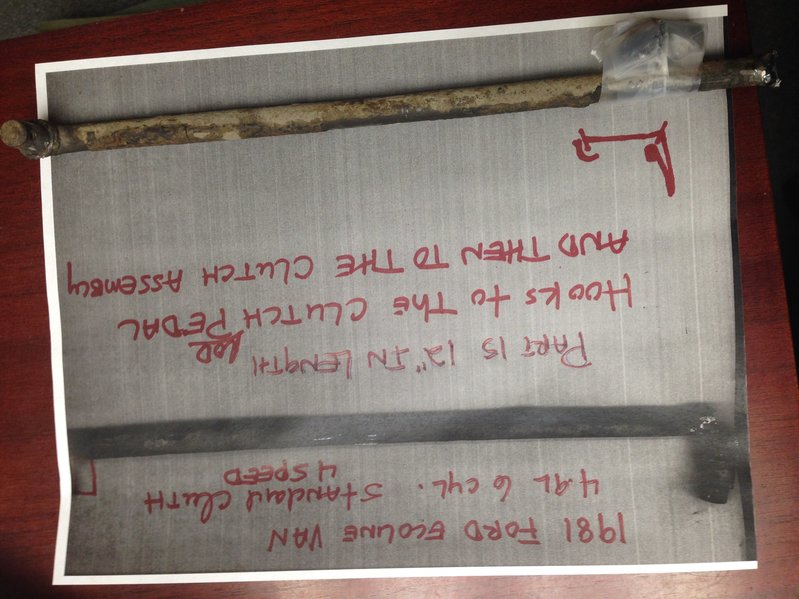 1981 FORD ECOLINE VAN
4.9L 6 CYL. STANDARD CLUTH
4 SPEED
PART IS 12" IN LENGTH
HOOKS TO THE CLUTCH PEDAL ROD
AND THEN TO THE CLUTCH ASSEMBLY